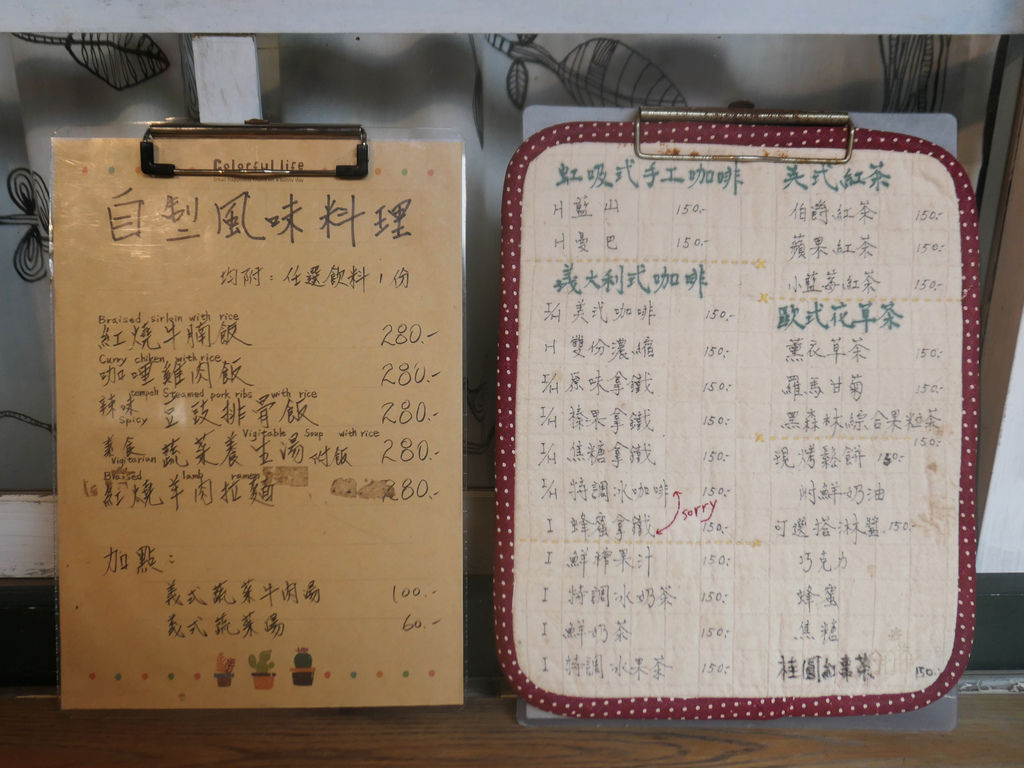 Colorful life
自製風味料理
均附：任選飲料1份
Braised sirloin with rice
紅燒牛腩飯 280.-
Curry chiken, with rice
咖哩雞肉飯 280.-
tempeh Steamed pork ribs with rice
辣味 豆豉排骨飯 280.-
Spicy
Vigitable Soup with rice
素食 蔬菜養生湯 附飯 280.-
Vigitarian
Braised lamb ramen
紅燒羊肉拉麵 280.-
加點：
義式蔬菜牛肉湯 100.-
義式蔬菜湯 60.-
虹吸式手工咖啡
H 藍山 150.-
H 曼巴 150.-
義大利式咖啡
I/H 美式咖啡 150.-
H 雙份濃縮 150.-
I/H 原味拿鐵 150.-
I/H 榛果拿鐵 150.-
I/H 焦糖拿鐵 150.-
I/H 特調冰咖啡 150.-
sorry
I 蜂蜜拿鐵 150.-
I 鮮榨果汁 150.-
I 特調冰奶茶 150.-
I 鮮奶茶 150.-
I 特調冰果茶 150.-
美式紅茶
伯爵紅茶 150.-
蘋果紅茶 150.-
小藍莓紅茶 150.-
歐式花草茶
薰衣草茶 150.-
羅馬甘菊 150.-
黑森林綜合果粒茶 150.-
現烤鬆餅 150.-
附鮮奶油
可選搭淋醬 150.-
巧克力
蜂蜜
焦糖
桂圓紅棗茶 150.-